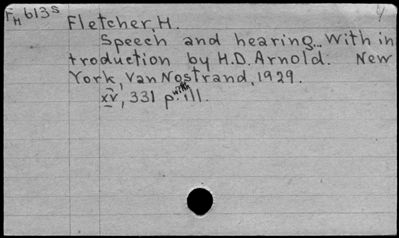 FH613s
Fletcher, H.
4
Speech and hearing... With in
troduction by H.D. Arnold. New
York, Van Nostrand, 1929.
xv, 331 p. with ill.